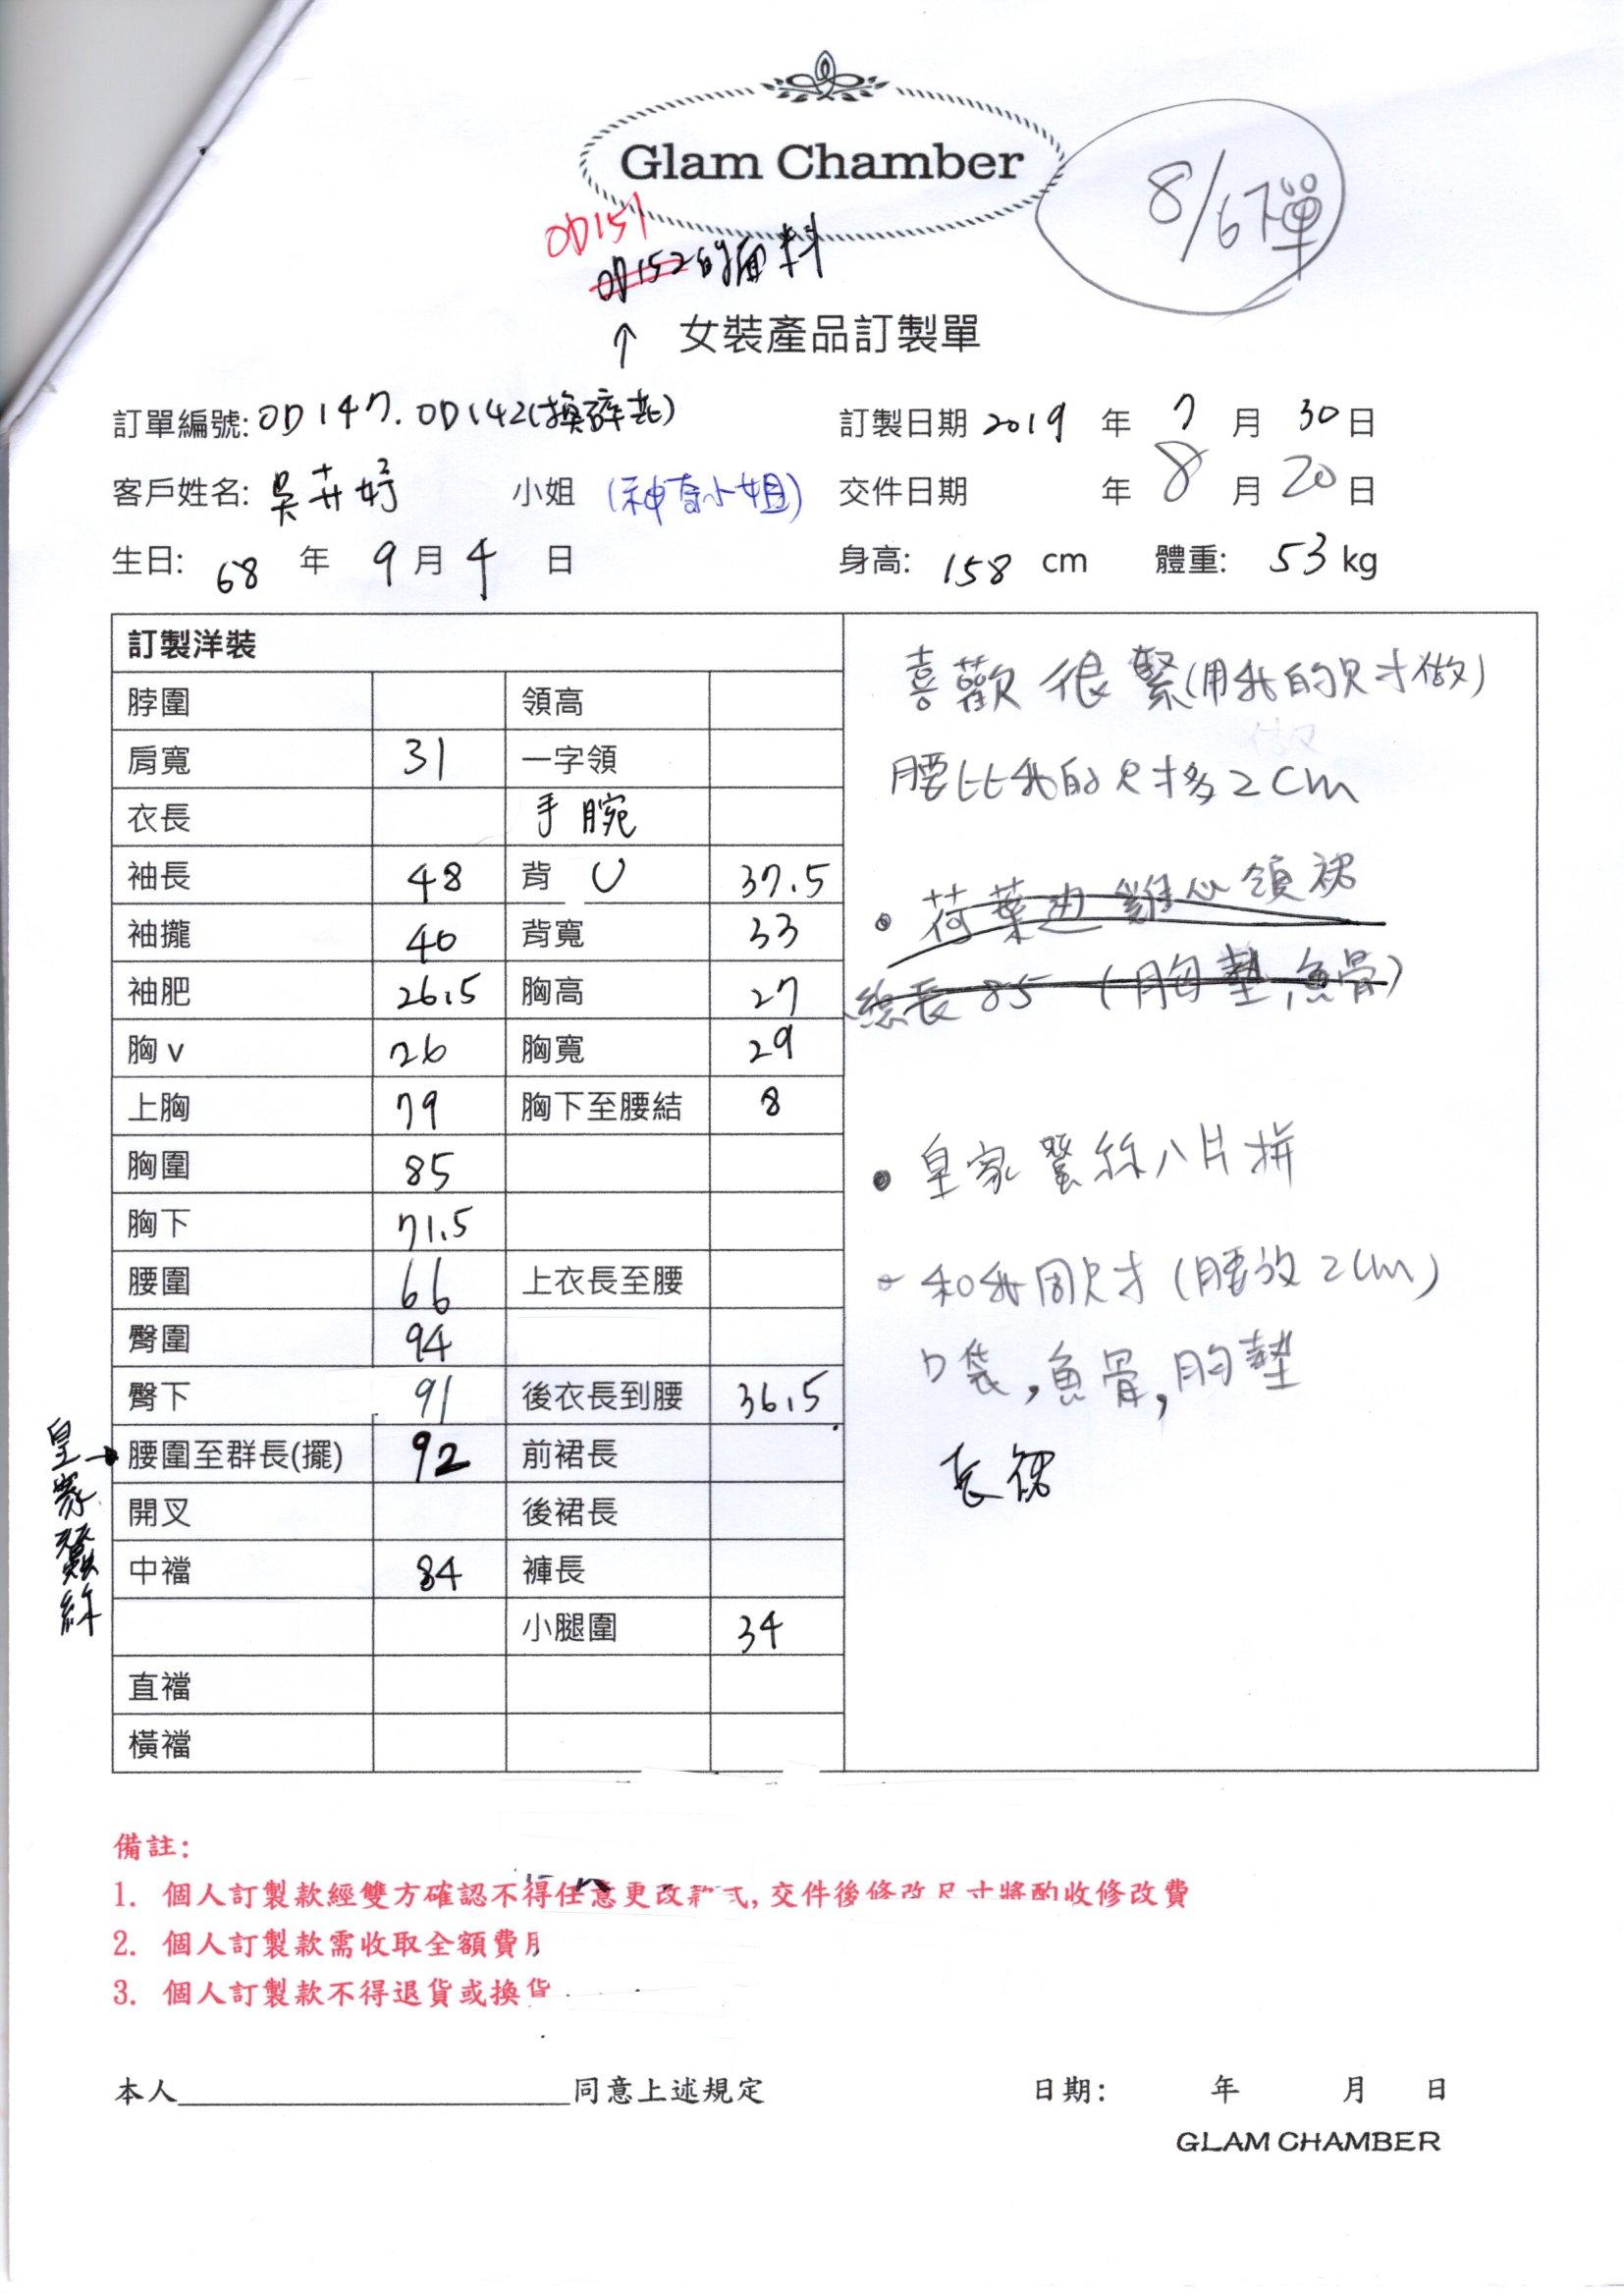 Glam Chamber
8/6下單
OD151
OD152的面料
↑ 女裝產品訂製單
訂單編號: OD147. OD142(換碎花) 訂製日期 2019 年 7 月 30 日
客戶姓名: 吳卉妤 小姐 (神奇小姐) 交件日期 年 8 月 20 日
生日: 68 年 9 月 4 日 身高: 158 cm 體重: 53 kg
訂製洋裝
脖圍 領高
肩寬 31 一字領
衣長 手腕
袖長 48 背 U 37.5
袖攏 40 背寬 33
袖肥 26.5 胸高 27
胸v 26 胸寬 29
上胸 79 胸下至腰結 8
胸圍 85
胸下 71.5
腰圍 66 上衣長至腰
臀圍 94
臀下 91 後衣長到腰 36.5
皇家蠶絲→ 腰圍至群長(擺) 92 前裙長
開叉 後裙長
中襠 84 褲長
小腿圍 34
直襠
橫襠
喜歡很緊(用我的尺寸做)
腰比我的尺寸多2cm
• 荷葉边雞心領裙
總長85 (胸墊,魚骨)
• 皇家蠶絲八片拼
- 和我同尺寸(腰放2cm)
口袋,魚骨,胸墊
長裙
備註:
1. 個人訂製款經雙方確認不得任意更改款式,交件後修改尺寸將酌收修改費
2. 個人訂製款需收取全額費用
3. 個人訂製款不得退貨或換貨
本人____________________同意上述規定 日期: 年 月 日
GLAM CHAMBER